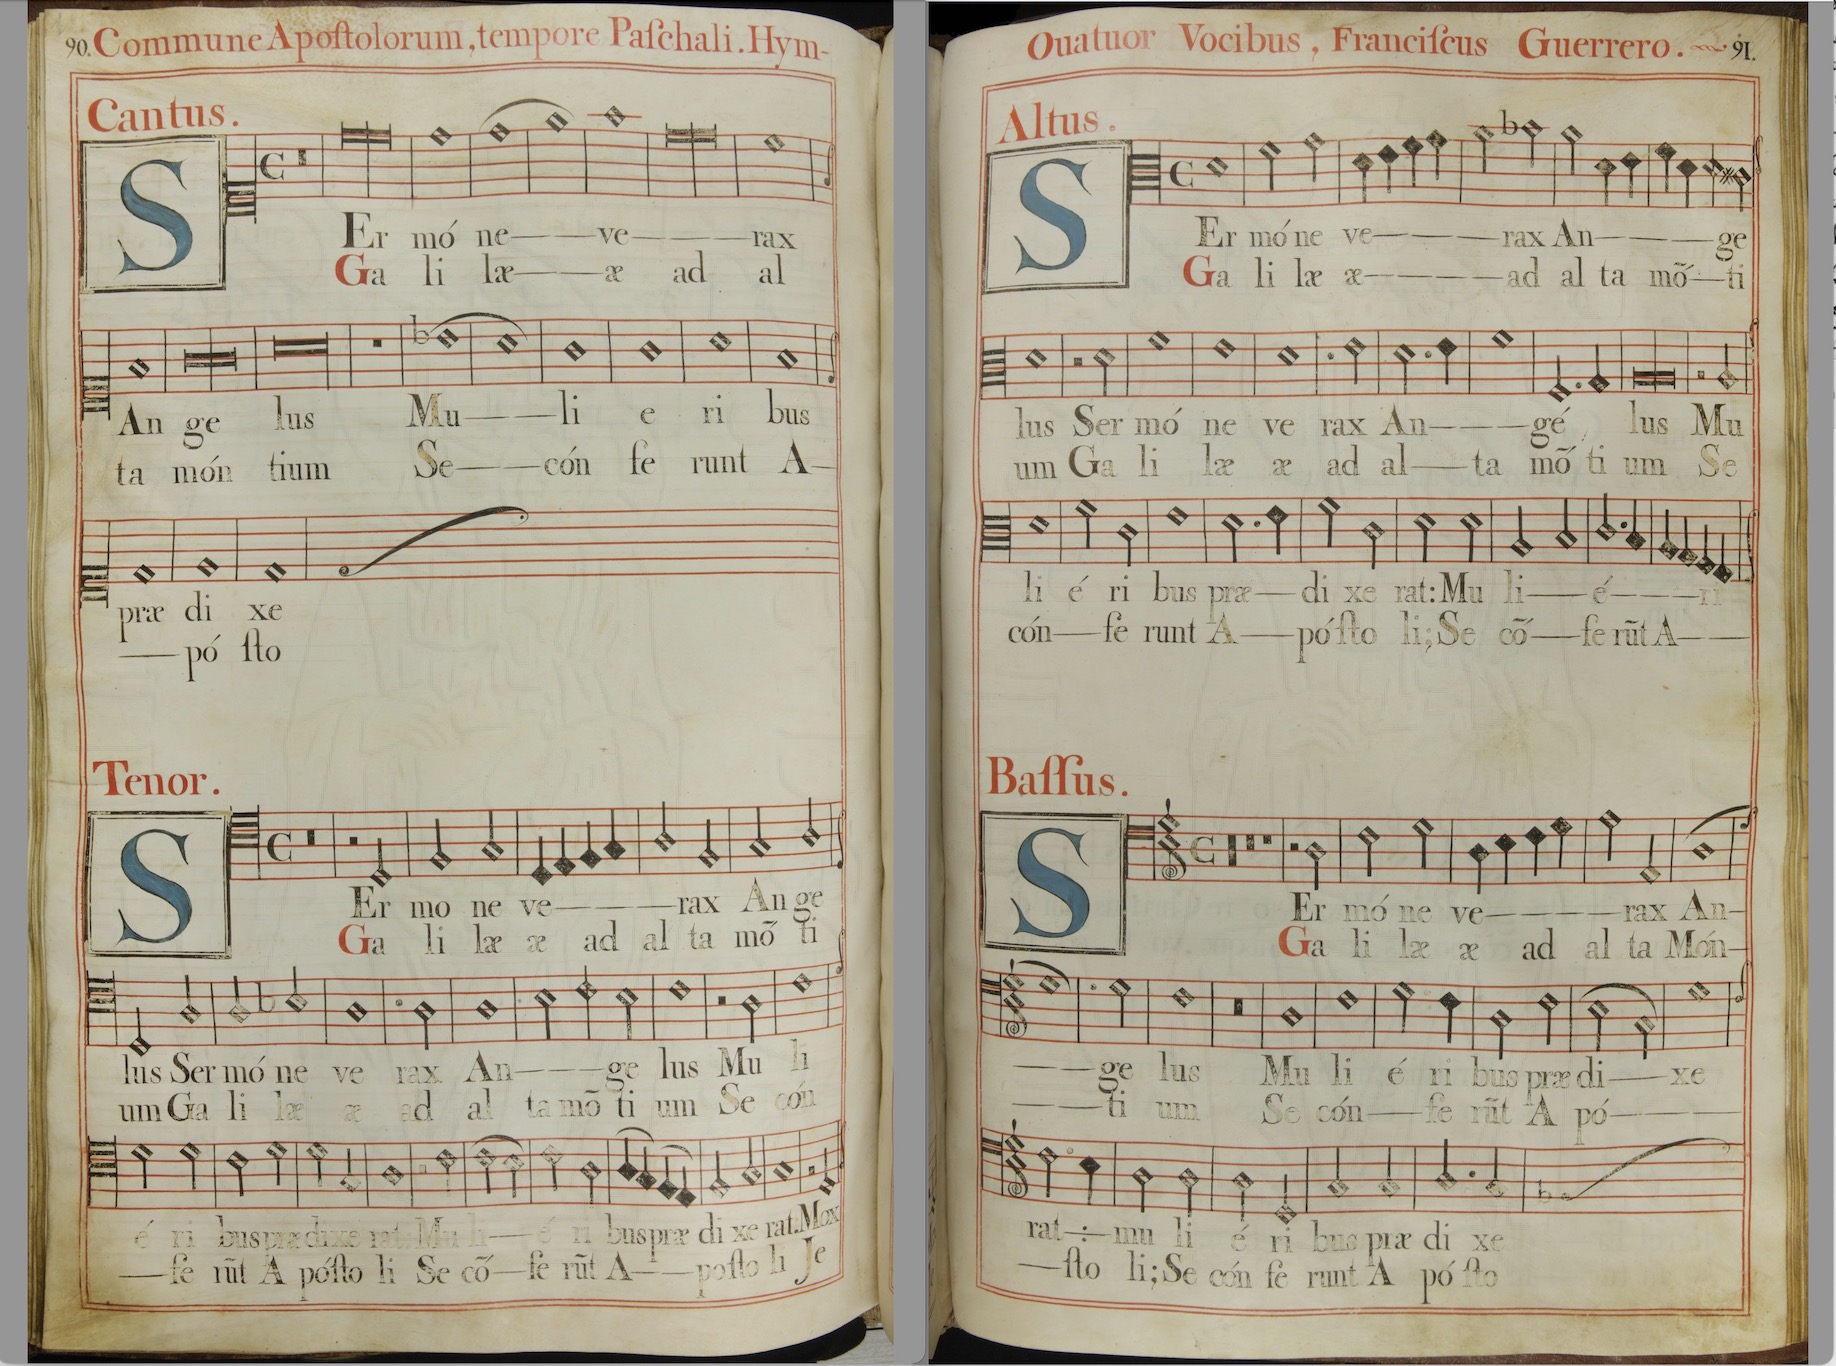 90. Commune Apoſtolorum, tempore Paſchali. Hym-
Cantus.
S
Er mó ne——ve———rax
Ga li læ——æ ad al
An ge lus Mu———li e ri bus
ta món tium Se——cón fe runt A—
præ di xe
——pó ſto
Tenor.
S
Er mo ne ve————rax An ge
Ga li læ æ ad al ta mõ ti
lus Ser mó ne ve rax An———ge lus Mu li
um Ga li læ æ ad al ta mõ ti um Se cón
é ri bus præ di xe rat: Mu li——é ri bus præ di xe rat. Mox
—fe rũt A póſto li Se cõ—fe rũt A——poſto li Je
Quatuor Vocibus, Franciſcus Guerrero. 91.
Altus.
S
Er mó ne ve————rax An————ge
Ga li læ æ————ad al ta mõ—ti
lus Ser mó ne ve rax An———gé lus Mu
um Ga li læ æ ad al——ta mõ ti um Se
li é ri bus præ—di xe rat: Mu li——é———ri
cón—fe runt A—pó ſto li; Se cõ—fe rũt A——
Baſſus.
S
Er mó ne ve————rax An—
Ga li læ æ ad al ta Món—
———ge lus Mu li é ri bus præ di—xe
———ti um Se cón—fe rũt A pó———
rat—:—mu li é ri bus præ di xe
—ſto li; Se cón fe runt A pó ſto